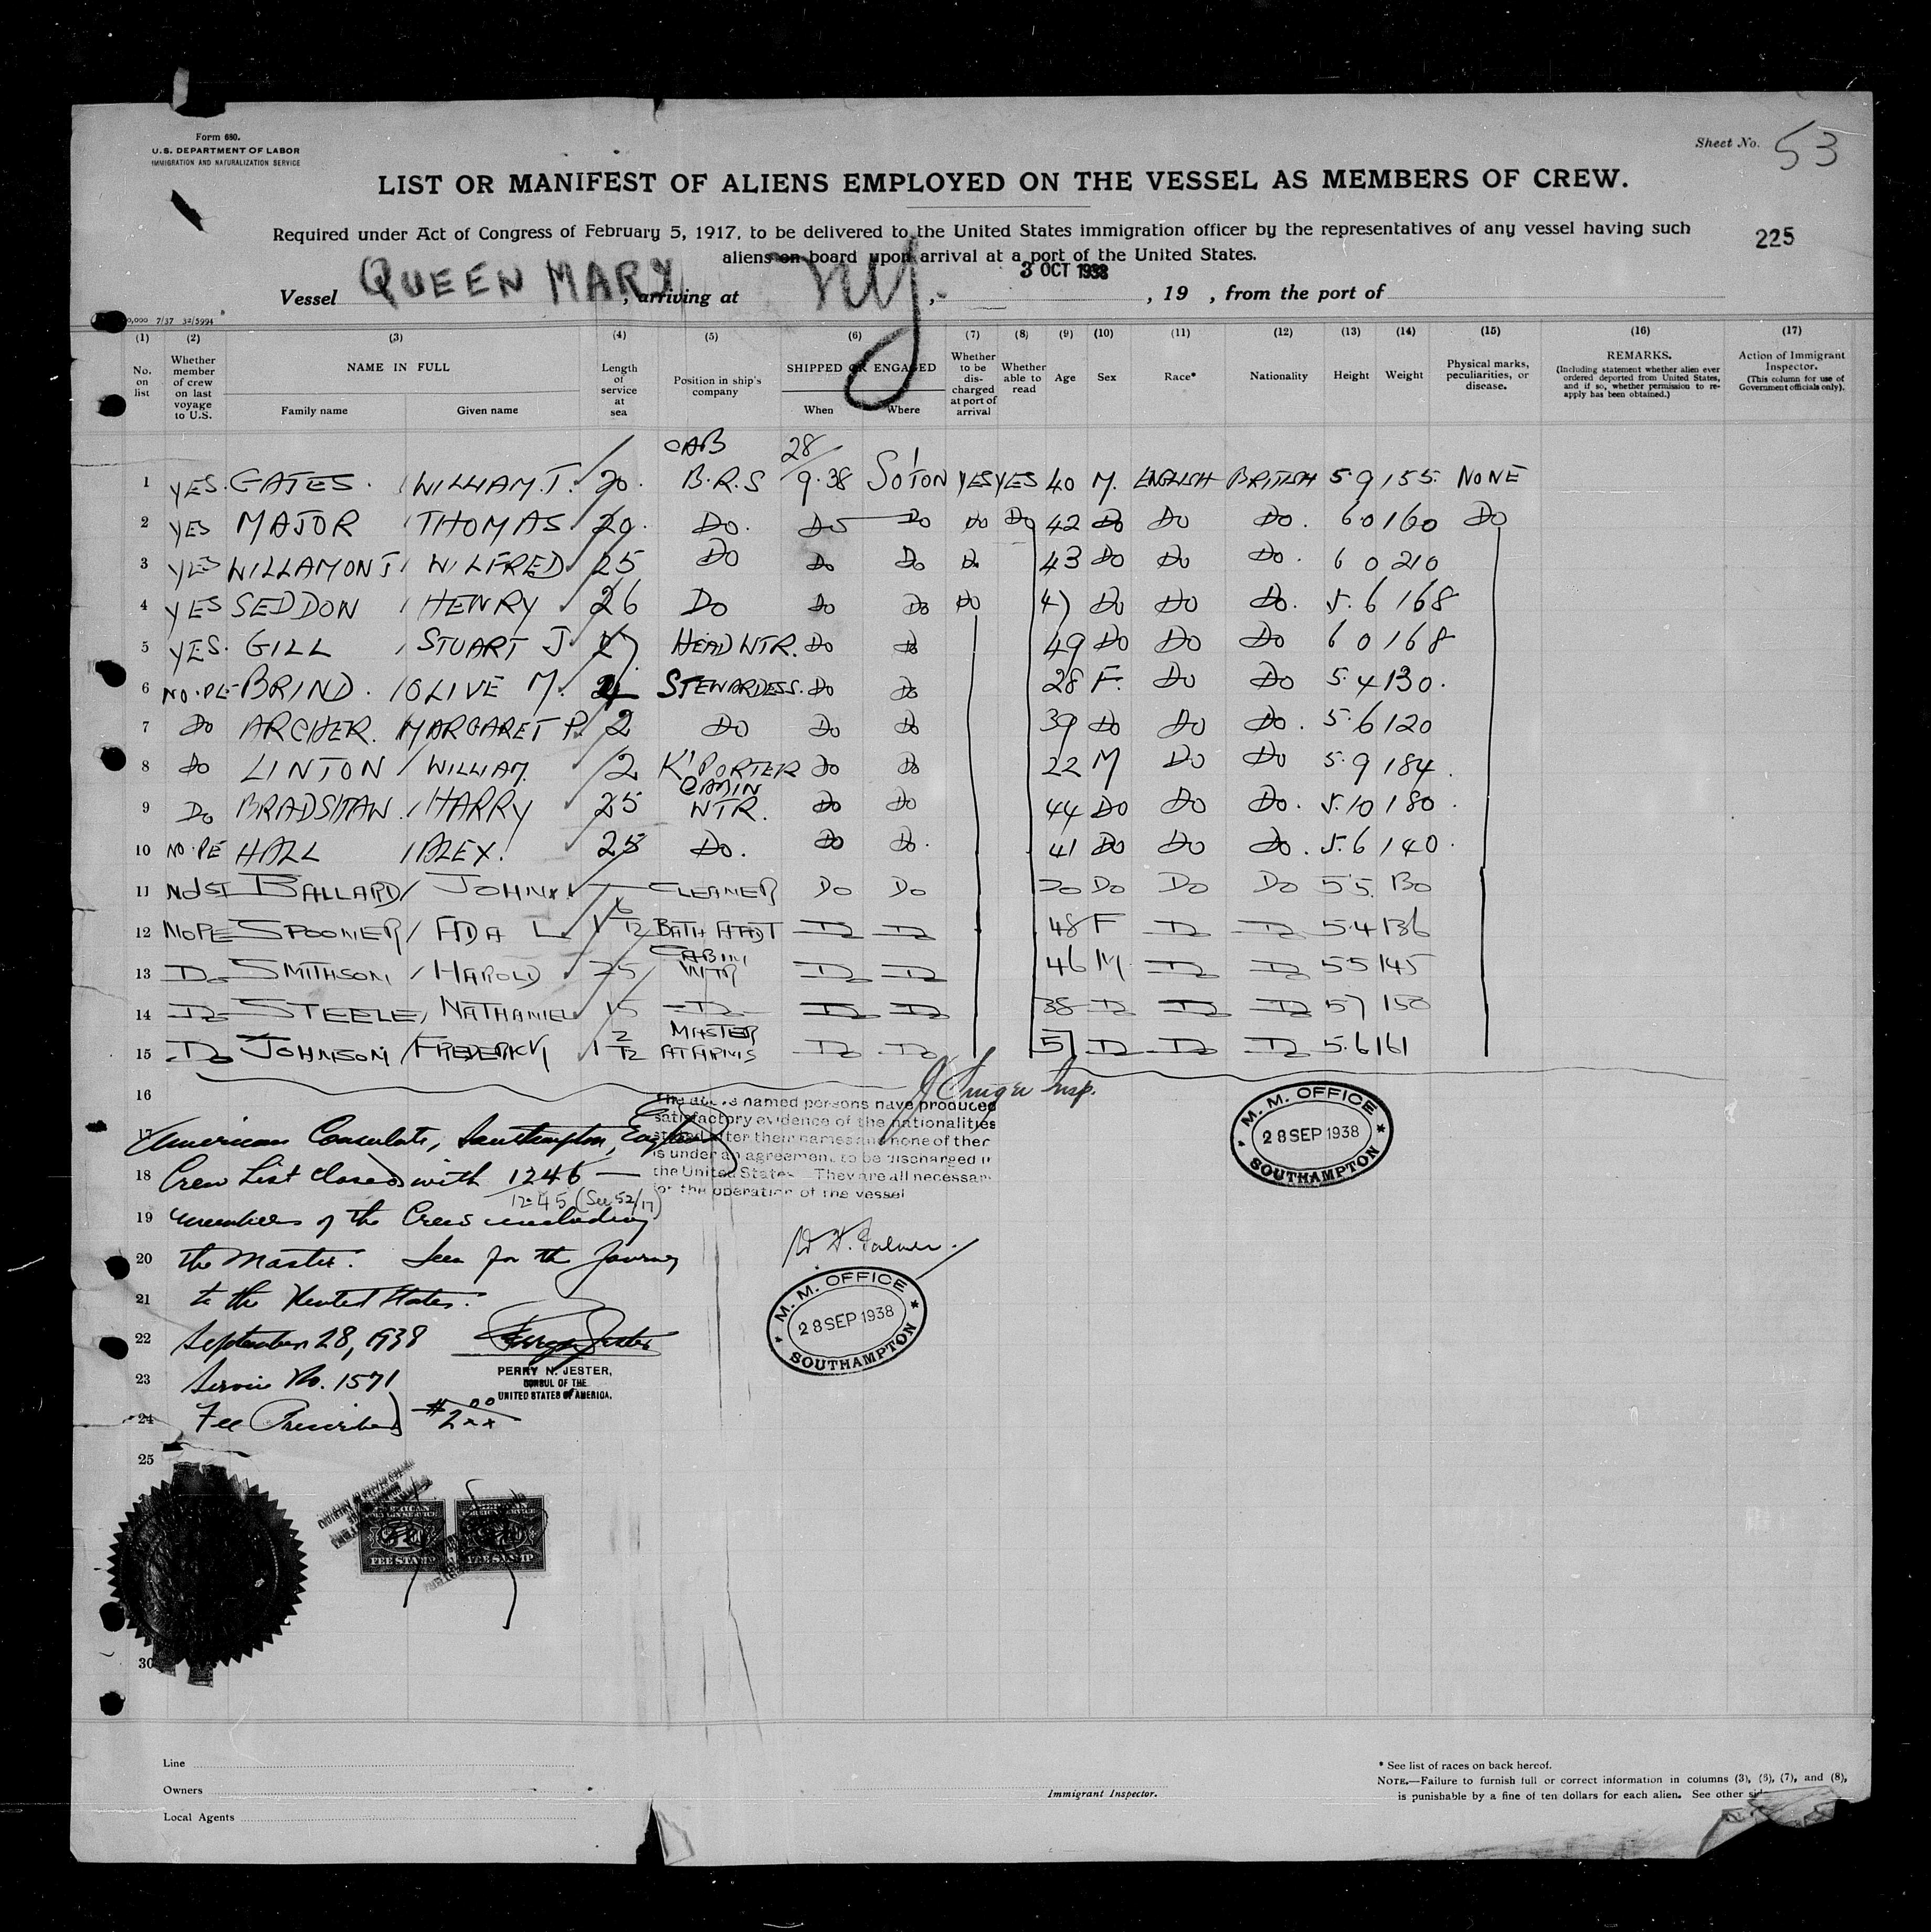 Form 680.
U.S. DEPARTMENT OF LABOR
IMMIGRATION AND NATURALIZATION SERVICE
Sheet No. 53
LIST OR MANIFEST OF ALIENS EMPLOYED ON THE VESSEL AS MEMBERS OF CREW.
Required under Act of Congress of February 5, 1917, to be delivered to the United States immigration officer by the representatives of any vessel having such
aliens on board upon arrival at a port of the United States.
225
Vessel QUEEN MARY, arriving at NY, 3 OCT 1938, 19 , from the port of
(1) (2) (3) (4) (5) (6) (7) (8) (9) (10) (11) (12) (13) (14) (15) (16) (17)
No. on list
Whether member of crew on last voyage to U.S.
NAME IN FULL
Family name Given name
Length of service at sea
Position in ship's company
SHIPPED OR ENGAGED
When Where
Whether to be discharged at port of arrival
Whether able to read
Age Sex Race* Nationality Height Weight
Physical marks, peculiarities, or disease.
REMARKS.
(Including statement whether alien ever ordered deported from United States, and if so, whether permission to re-apply has been obtained.)
Action of Immigrant Inspector.
(This column for use of Government officials only).
CAB 28
1 YES. GATES. WILLIAM.T. 20. B.R.S 9.38 SO'TON YES YES 40 M. ENGLISH BRITISH 5.9 155. NONE
2 YES MAJOR THOMAS 20. Do. Do Do Do Do 42 Do Do Do. 6.0 160 Do
3 YES WILLAMONT WILFRED 25 Do Do Do Do 43 Do Do Do. 6 0 210
4 YES SEDDON HENRY 26 Do Do Do Do 47 Do Do Do. 5.6 168
5 YES. GILL STUART J 27. HEAD WTR. Do Do 49 Do Do Do 6 0 168
6 NO.PE BRIND. OLIVE M. STEWARDESS. Do Do 28 F. Do Do 5.4 130.
7 Do ARCHER. MARGARET P. 2 Do Do Do 39 Do Do Do. 5.6 120
8 Do LINTON WILLIAM. 2 K' PORTER Do Do 22 M Do Do 5.9 184.
CABIN
9 Do BRADSHAW. HARRY 25 WTR. Do Do 44 Do Do Do. 5.10 180.
10 NO.PE HALL ALEX. 25 Do. Do Do. 41 Do Do Do. 5.6 140.
11 BALLARD JOHN CLEANER Do Do 20 Do Do Do 55. 130
12 NOPE SPOONER ADA L 1 6/12 BATH ATTDT Do Do 48 F Do Do 5.4 136
CABIN
13 Do SMITHSON HAROLD 25 WTR Do Do 46 M Do Do 55 145
14 Do STEELE, NATHANIEL 15 Do Do Do 38 Do Do Do 57 150
MASTER
15 Do JOHNSON FREDERICK 1 2/12 AT ARMS Do Do 51 Do Do Do 5.6 161
16
Insp.
The above named persons have produced
satisfactory evidence of the nationalities
stated after their names and none of them
is under an agreement to be discharged in
the United States They are all necessary
for the operation of the vessel
M. M. OFFICE
28 SEP 1938
SOUTHAMPTON
17 American Consulate, Southampton, England
18 Crew List Closed with 1246
1245 (See 52/17)
19 members of the Crew including
20 the Master. Seen for the Journey
21 to the United States.
22 September 28, 1938
PERRY N. JESTER,
CONSUL OF THE
UNITED STATES OF AMERICA.
M. M. OFFICE
28 SEP 1938
SOUTHAMPTON
23 Service No. 1571
24 Fee Prescribed $2.00
25
AMERICAN
FOREIGN SERVICE
FEE STAMP
FEE STAMP
30
Line
Owners
Local Agents
Immigrant Inspector.
* See list of races on back hereof.
NOTE.—Failure to furnish full or correct information in columns (3), (6), (7), and (8),
is punishable by a fine of ten dollars for each alien. See other